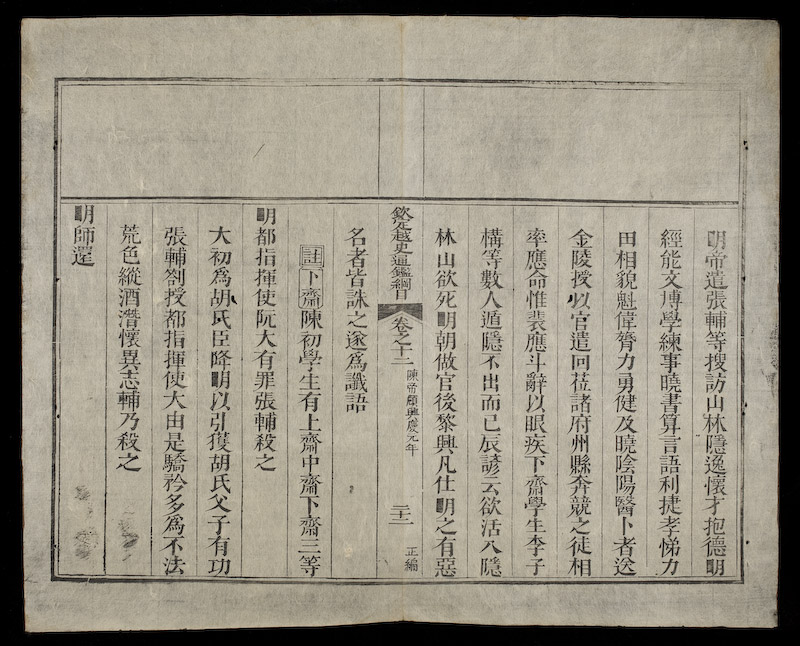 明帝遣張輔等搜訪山林隱逸懷才抱德明
經能文博學練事曉書算言語利捷孝悌力
田相貌魁偉膂力勇健及曉陰陽醫卜者送
金陵授以官遣回莅諸府州縣奔競之徒相
率應命惟裴應斗辭以眼疾下齋學生李子
構等數人遁隱不出而已辰諺云欲活入隱
林山欲死明朝做官後黎興凡仕明之有惡
欽定越史通鑑綱目 卷之十二 陳帝頠興慶元年 二十二 正編
名者皆誅之遂為讖語
註下齋陳初學生有上齋中齋下齋三等
明都指揮使阮大有罪張輔殺之
大初為胡氏臣降明以引獲胡氏父子有功
張輔劄授都指揮使大由是驕矜多為不法
荒色縱酒潛懷異志輔乃殺之
明師還